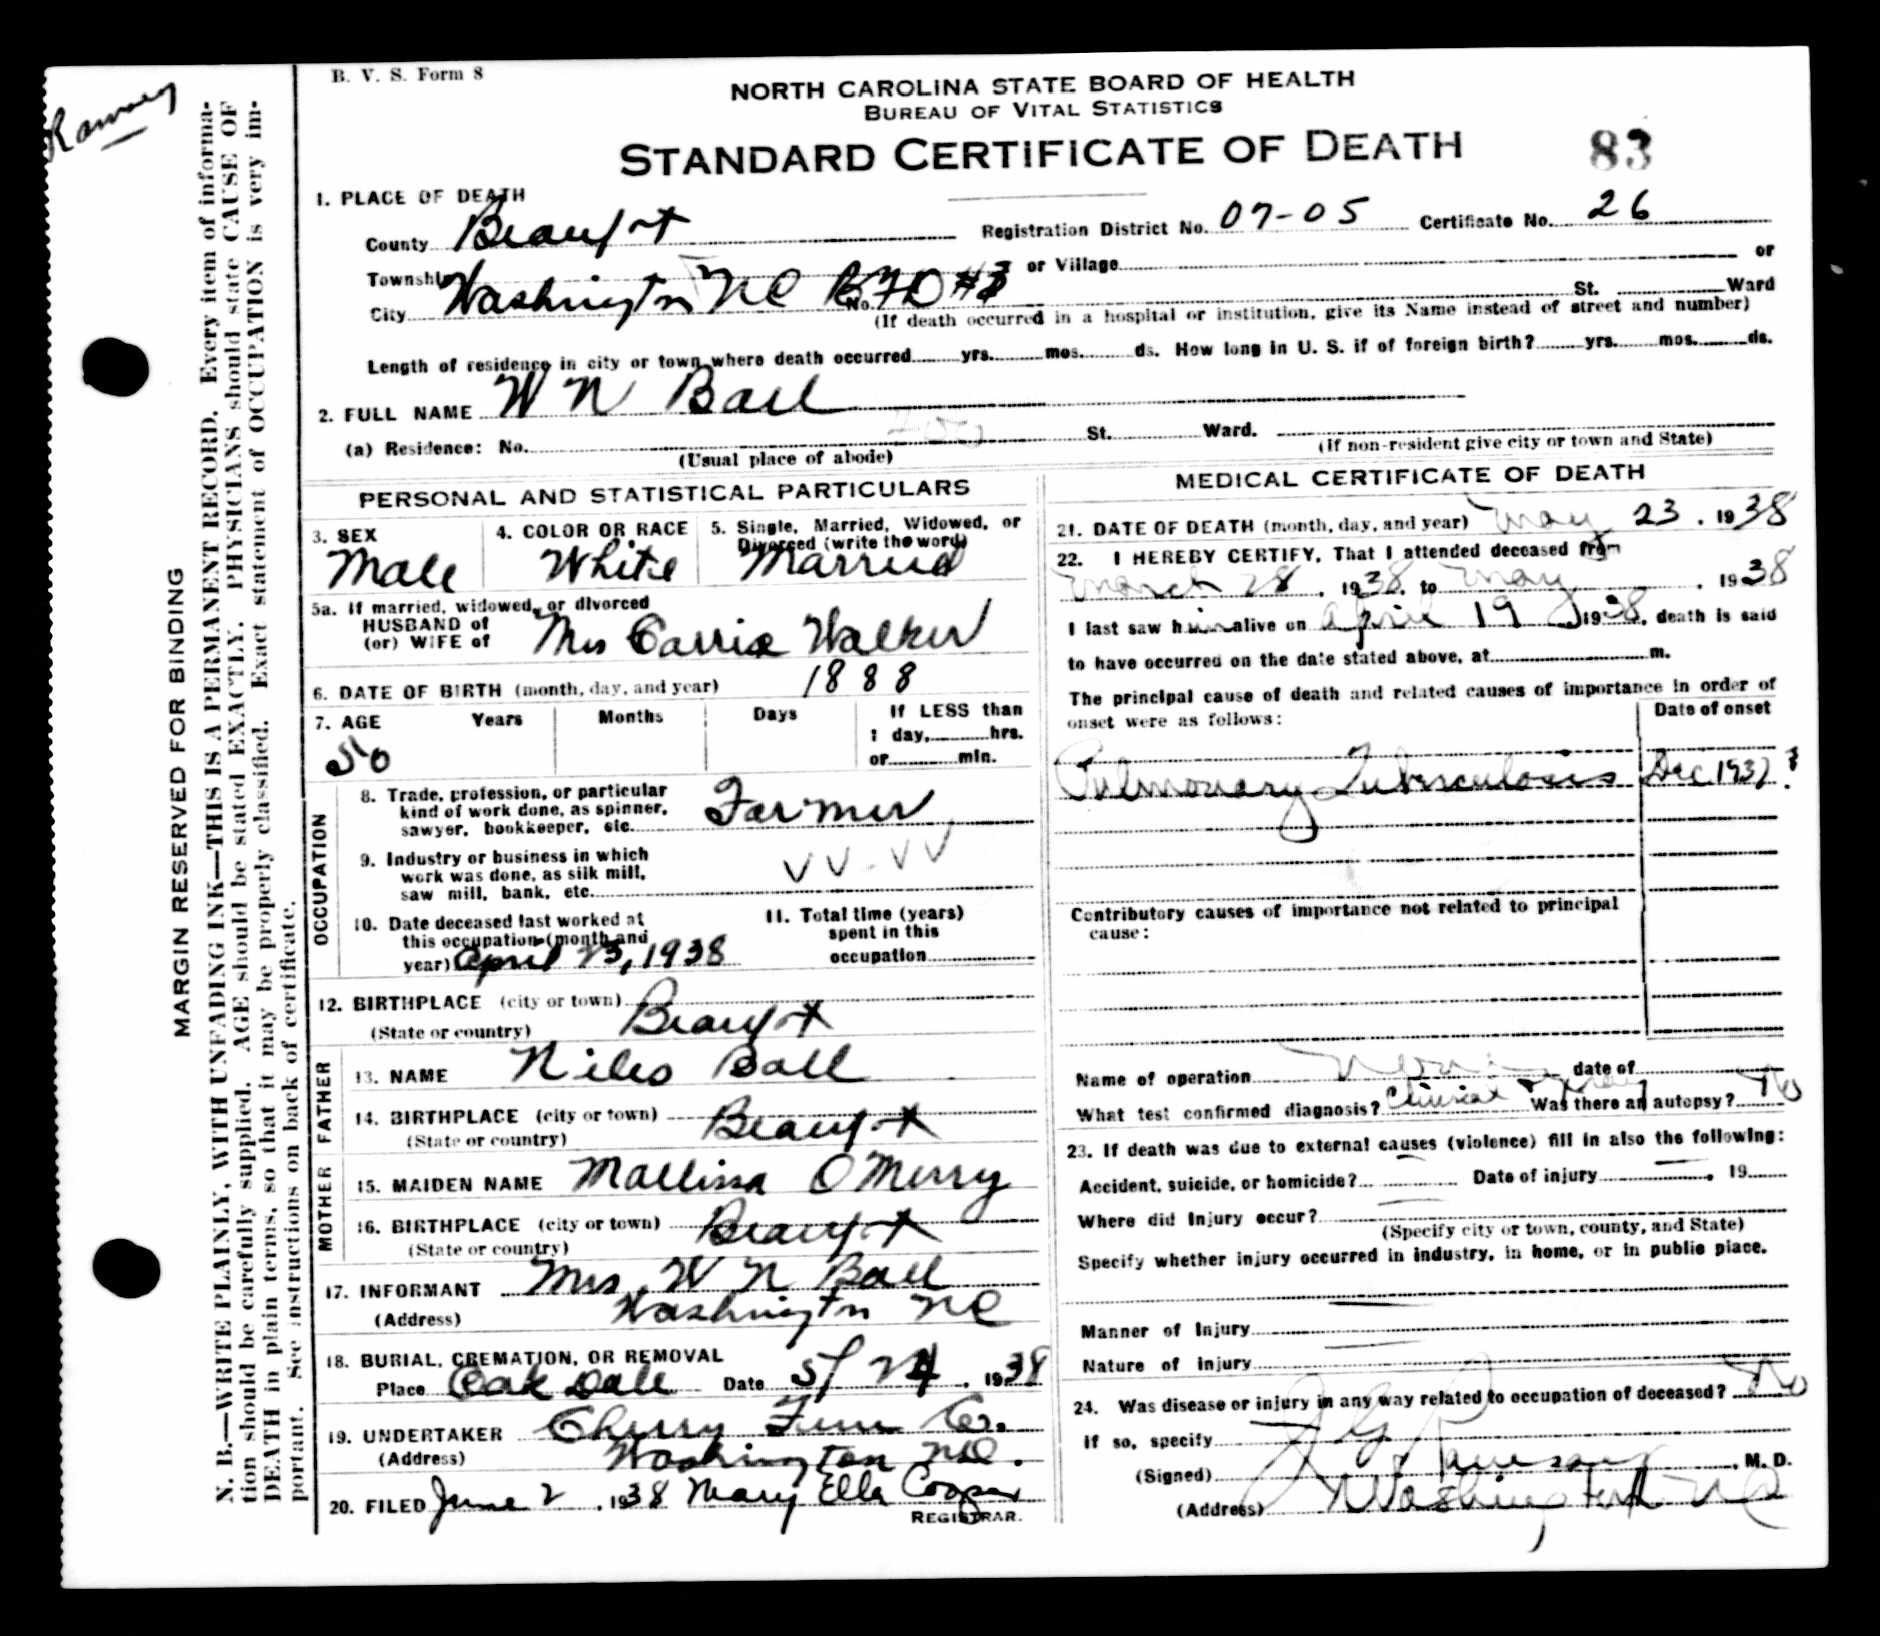 Ramsey
B. V. S. Form 8
NORTH CAROLINA STATE BOARD OF HEALTH
BUREAU OF VITAL STATISTICS
STANDARD CERTIFICATE OF DEATH
83
1. PLACE OF DEATH
County Beaufort Registration District No. 07-05 Certificate No. 26
Township or Village or
City Washington NC No. RFD # St. Ward
(If death occurred in a hospital or institution, give its Name instead of street and number)
Length of residence in city or town where death occurred yrs. mos. ds. How long in U. S. if of foreign birth? yrs. mos. ds.
2. FULL NAME W N Ball
(a) Residence: No. St. Ward.
(Usual place of abode) (If non-resident give city or town and State)
PERSONAL AND STATISTICAL PARTICULARS
3. SEX 4. COLOR OR RACE 5. Single, Married, Widowed, or
Divorced (write the word)
Male White Married
5a. If married, widowed, or divorced
HUSBAND of
(or) WIFE of Mrs Carrie Walker
6. DATE OF BIRTH (month, day, and year) 1888
7. AGE Years Months Days If LESS than
1 day, hrs.
50 or min.
OCCUPATION
8. Trade, profession, or particular
kind of work done, as spinner,
sawyer, bookkeeper, etc. Farmer
9. Industry or business in which
work was done, as silk mill,
saw mill, bank, etc.
10. Date deceased last worked at
this occupation (month and
year) April 23, 1938
11. Total time (years)
spent in this
occupation
12. BIRTHPLACE (city or town)
(State or country) Beaufort
FATHER
13. NAME Niles Ball
14. BIRTHPLACE (city or town)
(State or country) Beaufort
MOTHER
15. MAIDEN NAME Mallissa O Merry
16. BIRTHPLACE (city or town)
(State or country) Beaufort
17. INFORMANT Mrs. W N Ball
(Address) Washington NC
18. BURIAL, CREMATION, OR REMOVAL
Place Oak Dale Date 5/24, 1938
19. UNDERTAKER Cherry Furn Co.
(Address) Washington NC.
20. FILED June 2, 1938 Mary Ella Cooper
REGISTRAR.
MEDICAL CERTIFICATE OF DEATH
21. DATE OF DEATH (month, day, and year) May 23, 1938
22. I HEREBY CERTIFY, That I attended deceased from
March 28, 1938, to May , 1938
I last saw him alive on April 19 1938, death is said
to have occurred on the date stated above, at m.
The principal cause of death and related causes of importance in order of
onset were as follows: Date of onset
Pulmonary Tuberculosis Dec 1937 ?
Contributory causes of importance not related to principal
cause:
Name of operation None date of
What test confirmed diagnosis? Clinical Was there an autopsy? No
23. If death was due to external causes (violence) fill in also the following:
Accident, suicide, or homicide? Date of injury , 19
Where did injury occur?
(Specify city or town, county, and State)
Specify whether injury occurred in industry, in home, or in public place.
Manner of Injury
Nature of injury
24. Was disease or injury in any way related to occupation of deceased? No
If so, specify
(Signed) J G Ramsay, M. D.
(Address) Washington NC
MARGIN RESERVED FOR BINDING
N. B.—WRITE PLAINLY, WITH UNFADING INK—THIS IS A PERMANENT RECORD. Every item of informa-
tion should be carefully supplied. AGE should be stated EXACTLY. PHYSICIANS should state CAUSE OF
DEATH in plain terms, so that it may be properly classified. Exact statement of OCCUPATION is very im-
portant. See instructions on back of certificate.